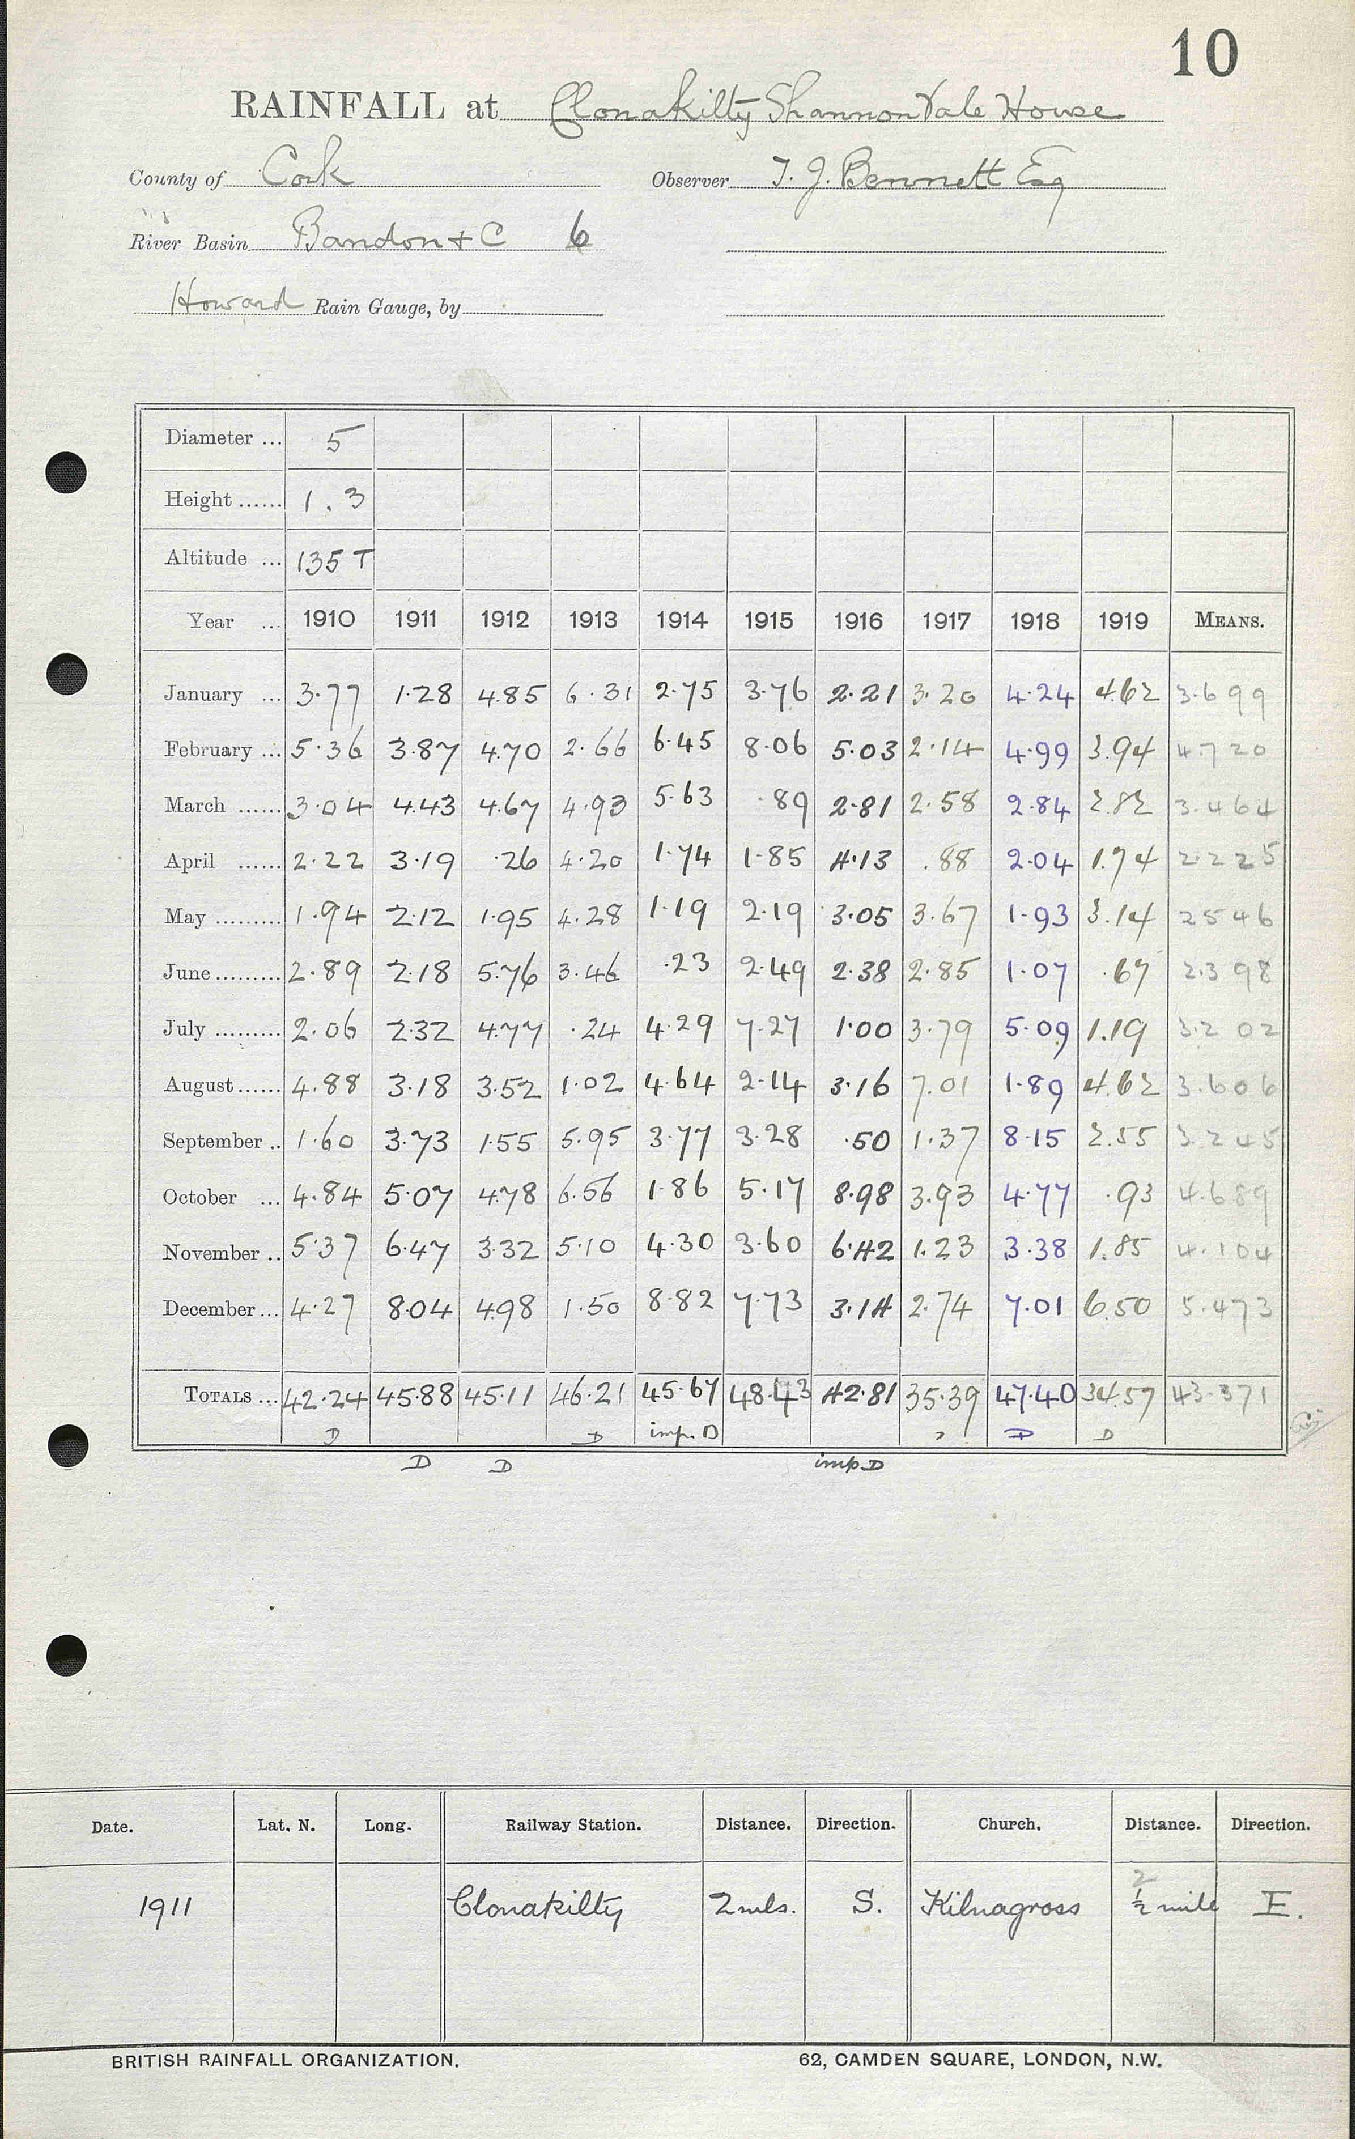 10
RAINFALL at Clonakilty Shannon Vale House
County of Cork Observer T. J. Bennett Esq
River Basin Bandon + C 6
Howard Rain Gauge, by
Diameter ... 5
Height ...... 1.3
Altitude ... 135 T
Year ... 1910 1911 1912 1913 1914 1915 1916 1917 1918 1919 MEANS.
January ... 3.77 1.28 4.85 6.31 2.75 3.76 2.21 3.20 4.24 4.62 3.699
February ... 5.36 3.87 4.70 2.66 6.45 8.06 5.03 2.14 4.99 3.94 4.720
March ...... 3.04 4.43 4.67 4.93 5.63 .89 2.81 2.58 2.84 2.82 3.464
April ...... 2.22 3.19 .26 4.20 1.74 1.85 4.13 .88 2.04 1.74 2.225
May ......... 1.94 2.12 1.95 4.28 1.19 2.19 3.05 3.67 1.93 3.14 2546
June ......... 2.89 2.18 5.76 3.46 .23 2.49 2.38 2.85 1.07 .67 2.398
July ......... 2.06 2.32 4.77 .24 4.29 7.27 1.00 3.79 5.09 1.19 3.202
August ...... 4.88 3.18 3.52 1.02 4.64 2.14 3.16 7.01 1.89 4.62 3.606
September .. 1.60 3.73 1.55 5.95 3.77 3.28 .50 1.37 8.15 2.55 3.245
October ... 4.84 5.07 4.78 6.56 1.86 5.17 8.98 3.93 4.77 .93 4.689
November .. 5.37 6.47 3.32 5.10 4.30 3.60 6.42 1.23 3.38 1.85 4.104
December ... 4.27 8.04 4.98 1.50 8.82 7.73 3.14 2.74 7.01 6.50 5.473
TOTALS ... 42.24 45.88 45.11 46.21 45.67 48.43 42.81 35.39 47.40 34.57 43.371
D D imp. D D D
D D imp D
Date. Lat. N. Long. Railway Station. Distance. Direction. Church. Distance. Direction.
2
1911 Clonakilty 2 mls. S. Kilnagross ½ mile E.
BRITISH RAINFALL ORGANIZATION. 62, CAMDEN SQUARE, LONDON, N.W.